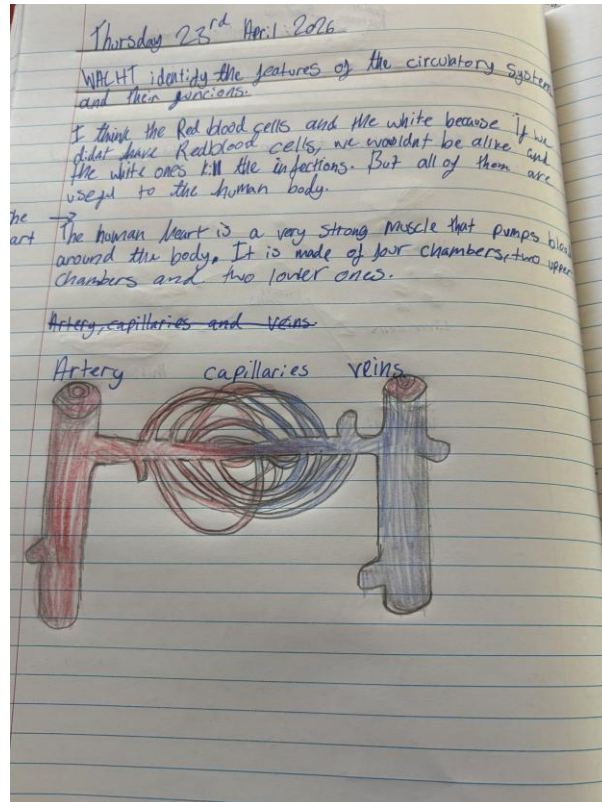 Thursday 23rd April 2026
WACHT identidy the features of the circulatory system
and their funcions.
I think the Red blood cells and the white because if we
didnt have Redblood cells, we wouldnt be alive and
the white ones kill the infections. But all of them are
useful to the human body.
The human heart is a very strong muscle that pumps blood
around the body. It is made of four chambers, two upper
chambers and two lower ones.
Artery, capillaries and veins.
Artery capillaries veins